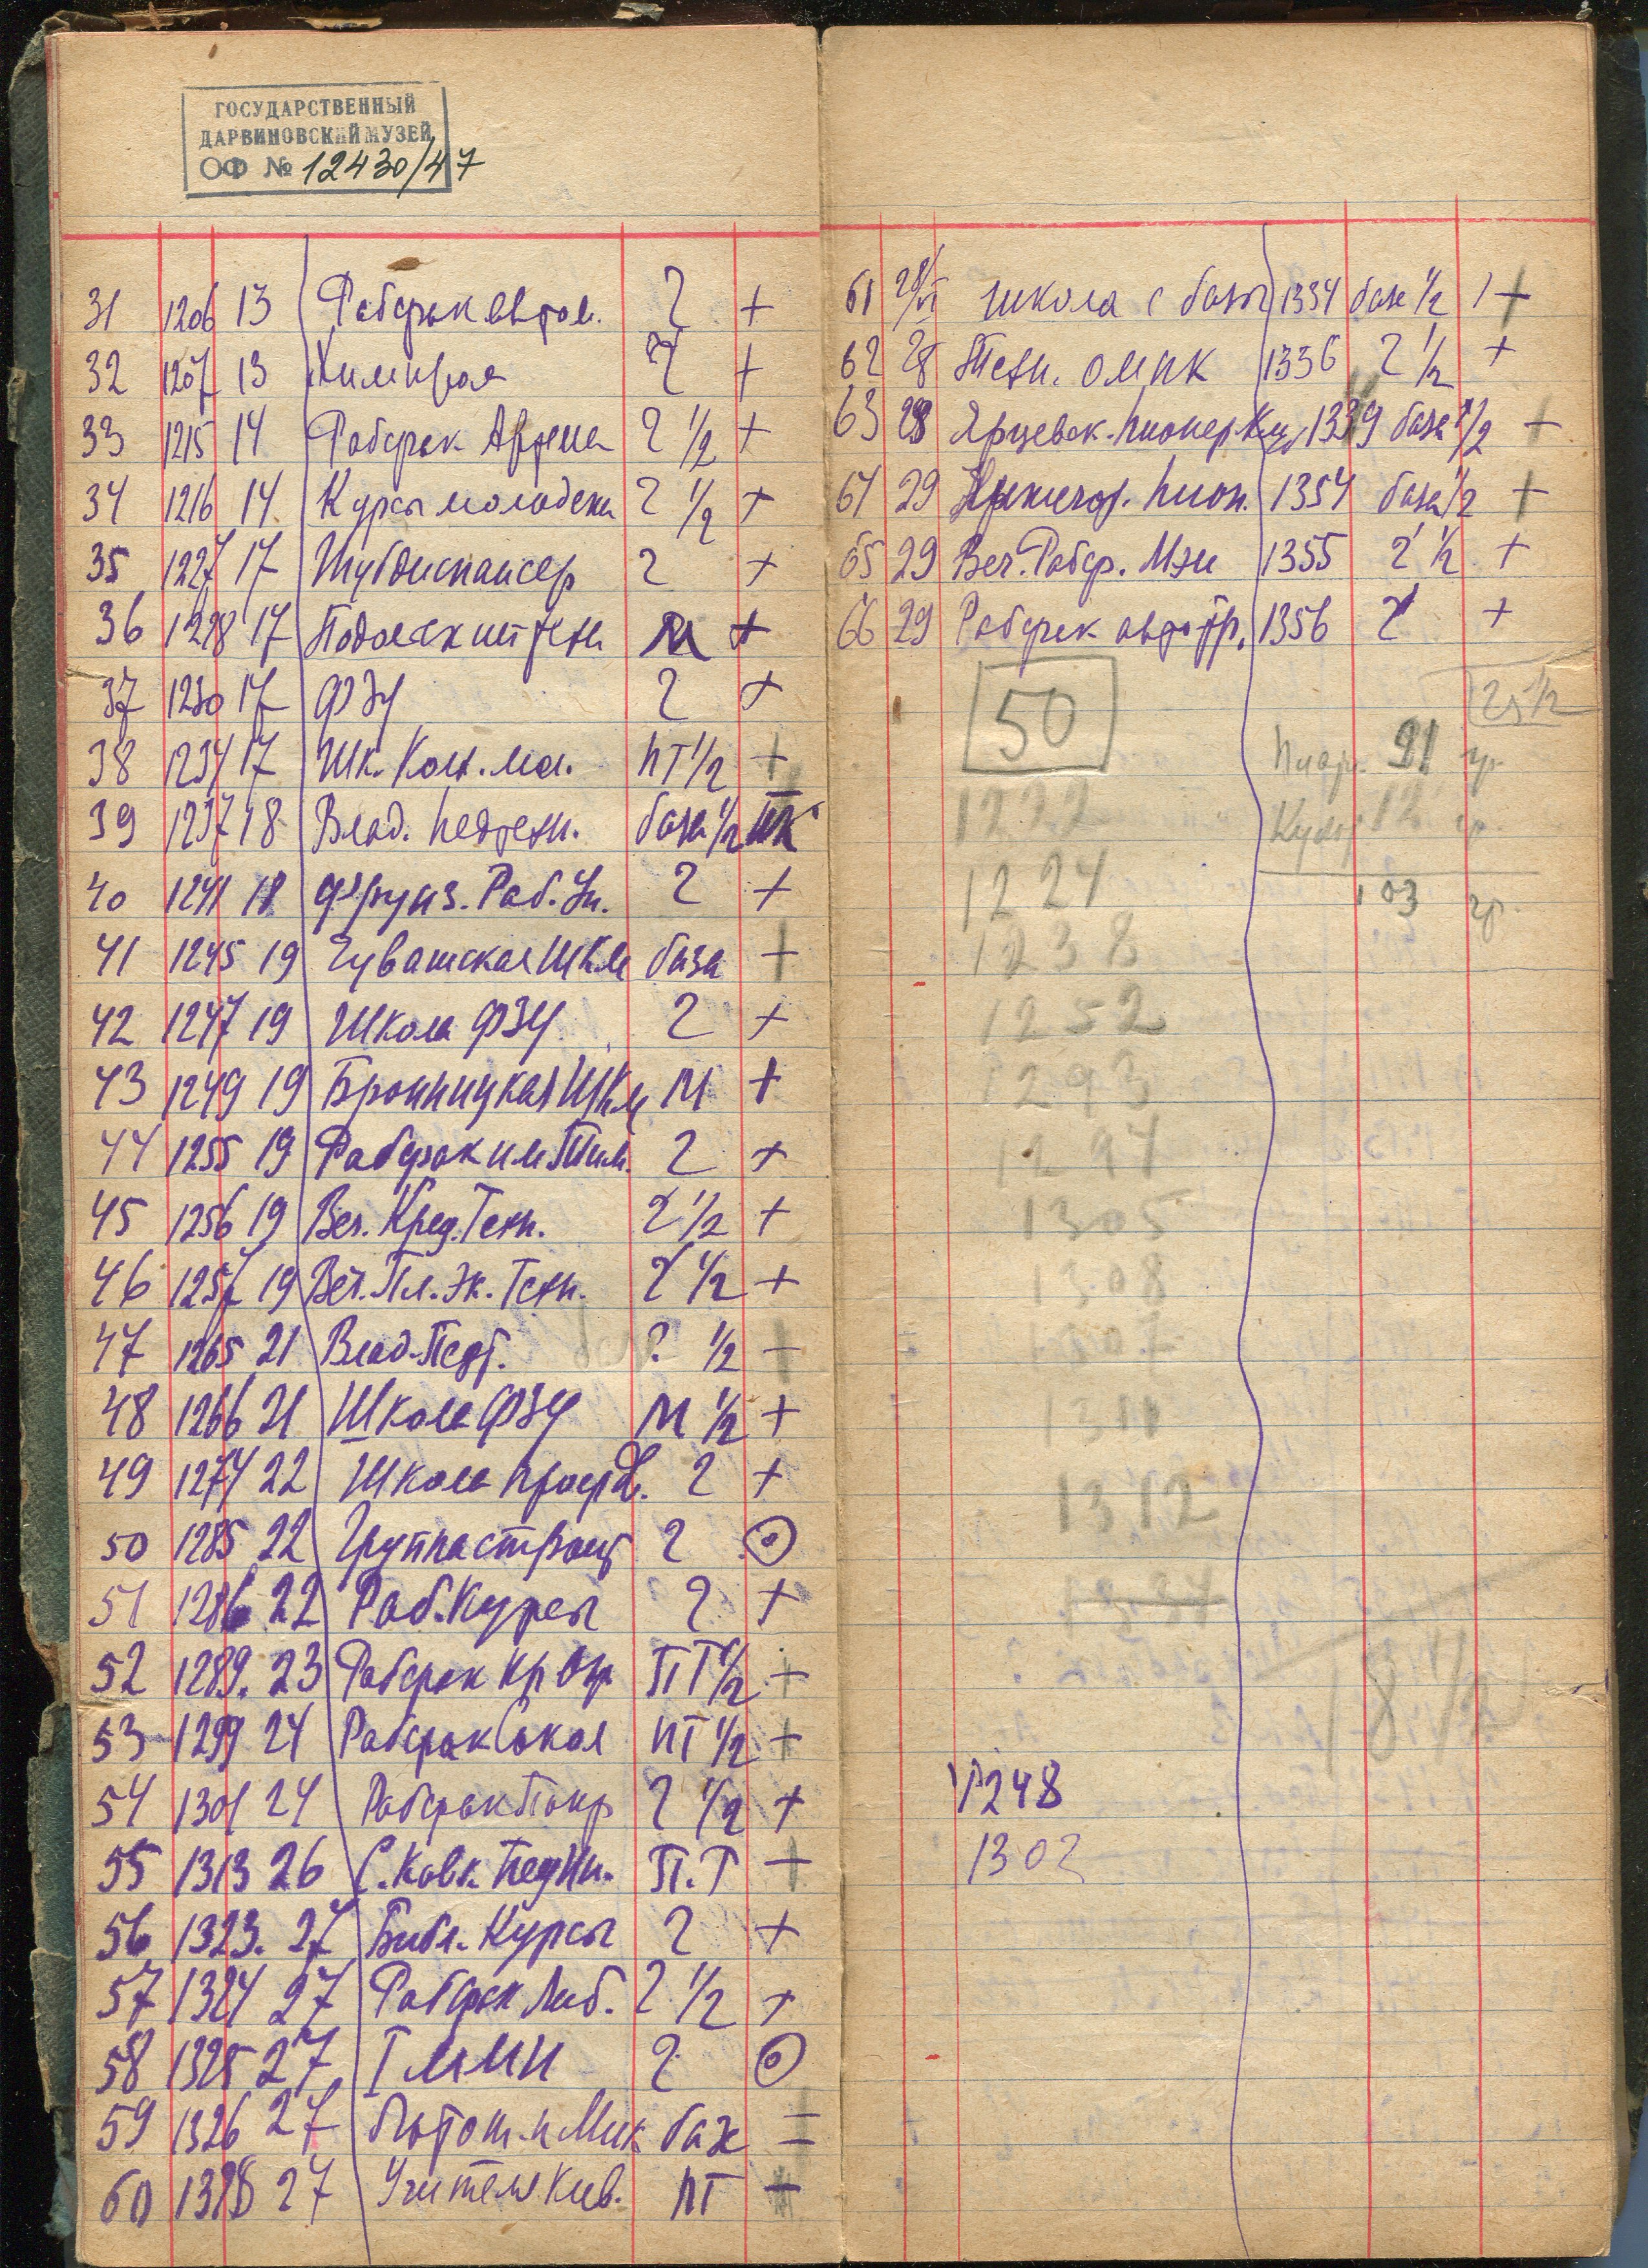 ГОСУДАРСТВЕННЫЙ
ДАРВИНОВСКИЙ МУЗЕЙ
ОФ № 12430/47
31 1206 13 Рабфак автом. 2 +
32 1207 13 2 +
33 1215 14 Рабфак Артема 2 ½ +
34 1216 14 Курсы молодежи 2 ½ +
35 1227 17 Тубдиспансер 2 +
36 1228 17 М +
37 1230 17 ФЗУ 2 +
38 1234 17 Шк. Колх. мол. ПТ ½ +
39 1237 18 Влад. педтехн. база ½
40 1241 18 Фрунз. Раб. Ун. 2 +
41 1245 19 Чувашская ШКМ база +
42 1247 19 Школа ФЗУ 2 +
43 1249 19 Бронницкая ШКМ М +
44 1255 19 Рабфак им. Тим. 2 +
45 1256 19 Веч. Кред. Техн. 2 ½ +
46 1257 19 Веч. Пл. Эк. Техн. 2 ½ +
47 1265 21 Влад. ? ½ –
48 1266 21 Школа ФЗУ М ½ +
49 1274 22 Школа 2 +
50 1285 22 Группа 2 ⊙
51 1286 22 Раб. Курсы 2 +
52 1289. 23 Рабфак ПТ ½ +
53 1299 24 Рабфак Сокол ПТ ½ +
54 1301 24 Рабфак 2 ½ +
55 1313 26 С. Кавк. П.Т +
56 1323. 27 Библ. Курсы 2 +
57 1324 27 Рабфак 2 ½ +
58 1325 27 2 ⊙
59 1326 27 =
60 1328 27 Учителя Киев. ПТ –
61 28/VI Школа с базы 1334 база ½ +
62 28 Техн. 1336 2 ½ +
63 28 Ярцевск. пионер 1339 база ½ +
64 29 пион. 1354 база ½ +
65 29 Веч. Рабф. Мэи 1355 2 ½ +
66 29 Рабфак автотр. 1356 2 +
50
25 ½
91 гр.
1222
12 гр.
1224
103 гр.
1238
1252
1293
1294
1305
1308
1311
1312
1334
18 ½
1248
1302